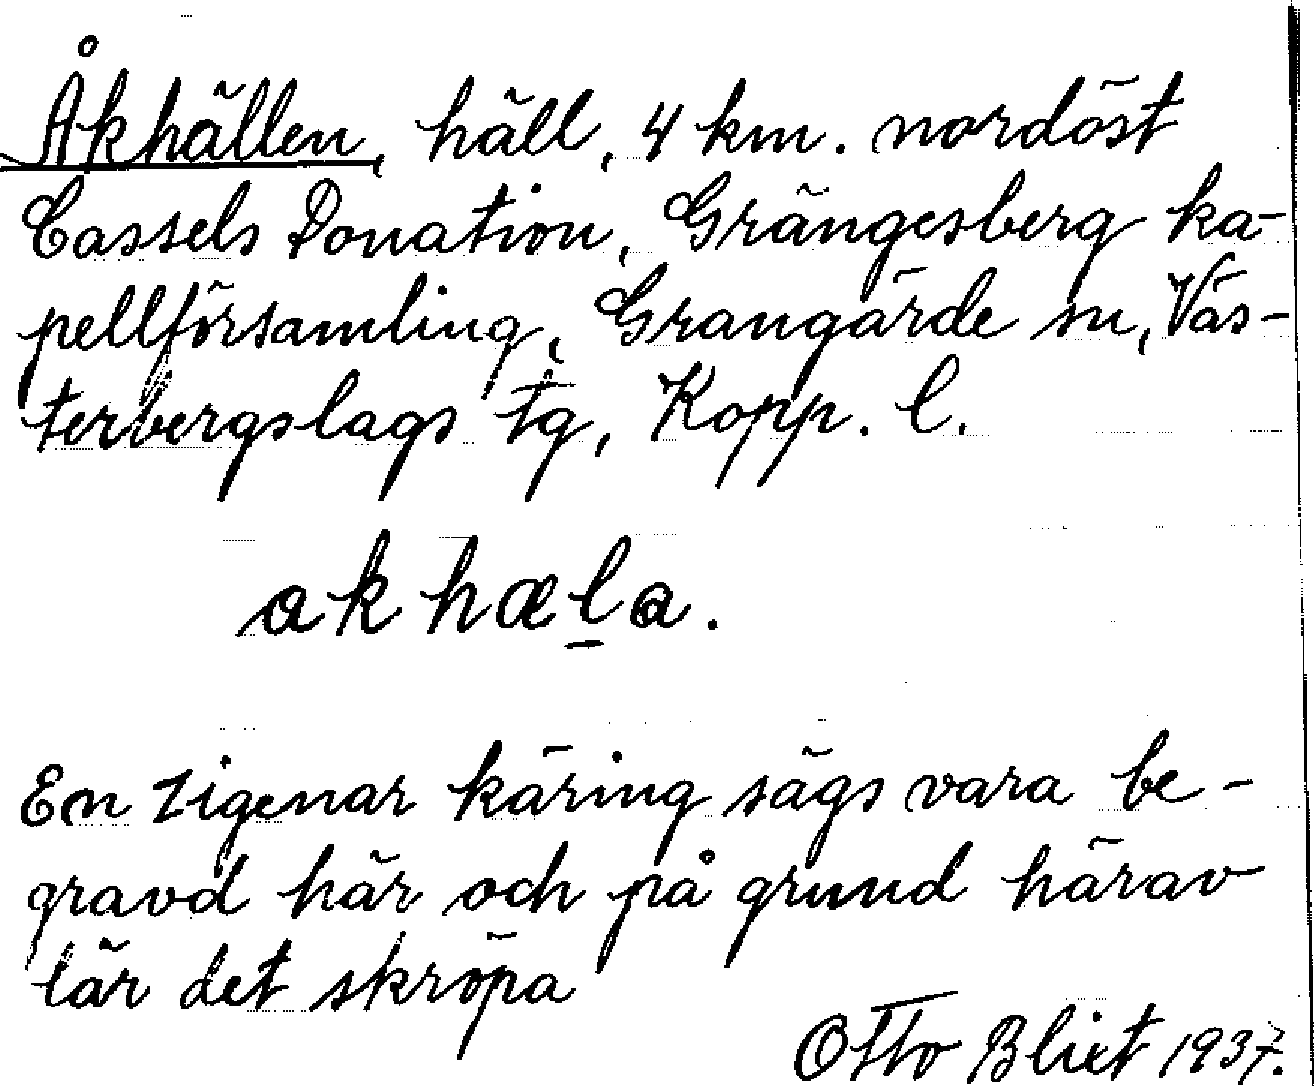 Åkhällen, häll, 4 km. nordöst
Cassels Donation, Grängesberg ka-
pellförsamling, Grangärde sn, Väs-
terbergslags tg, Kopp. l.
akhæla.
En zigenar käring sägs vara be-
gravd här och på grund härav
lär det skröpa
Otto Blixt 1937.